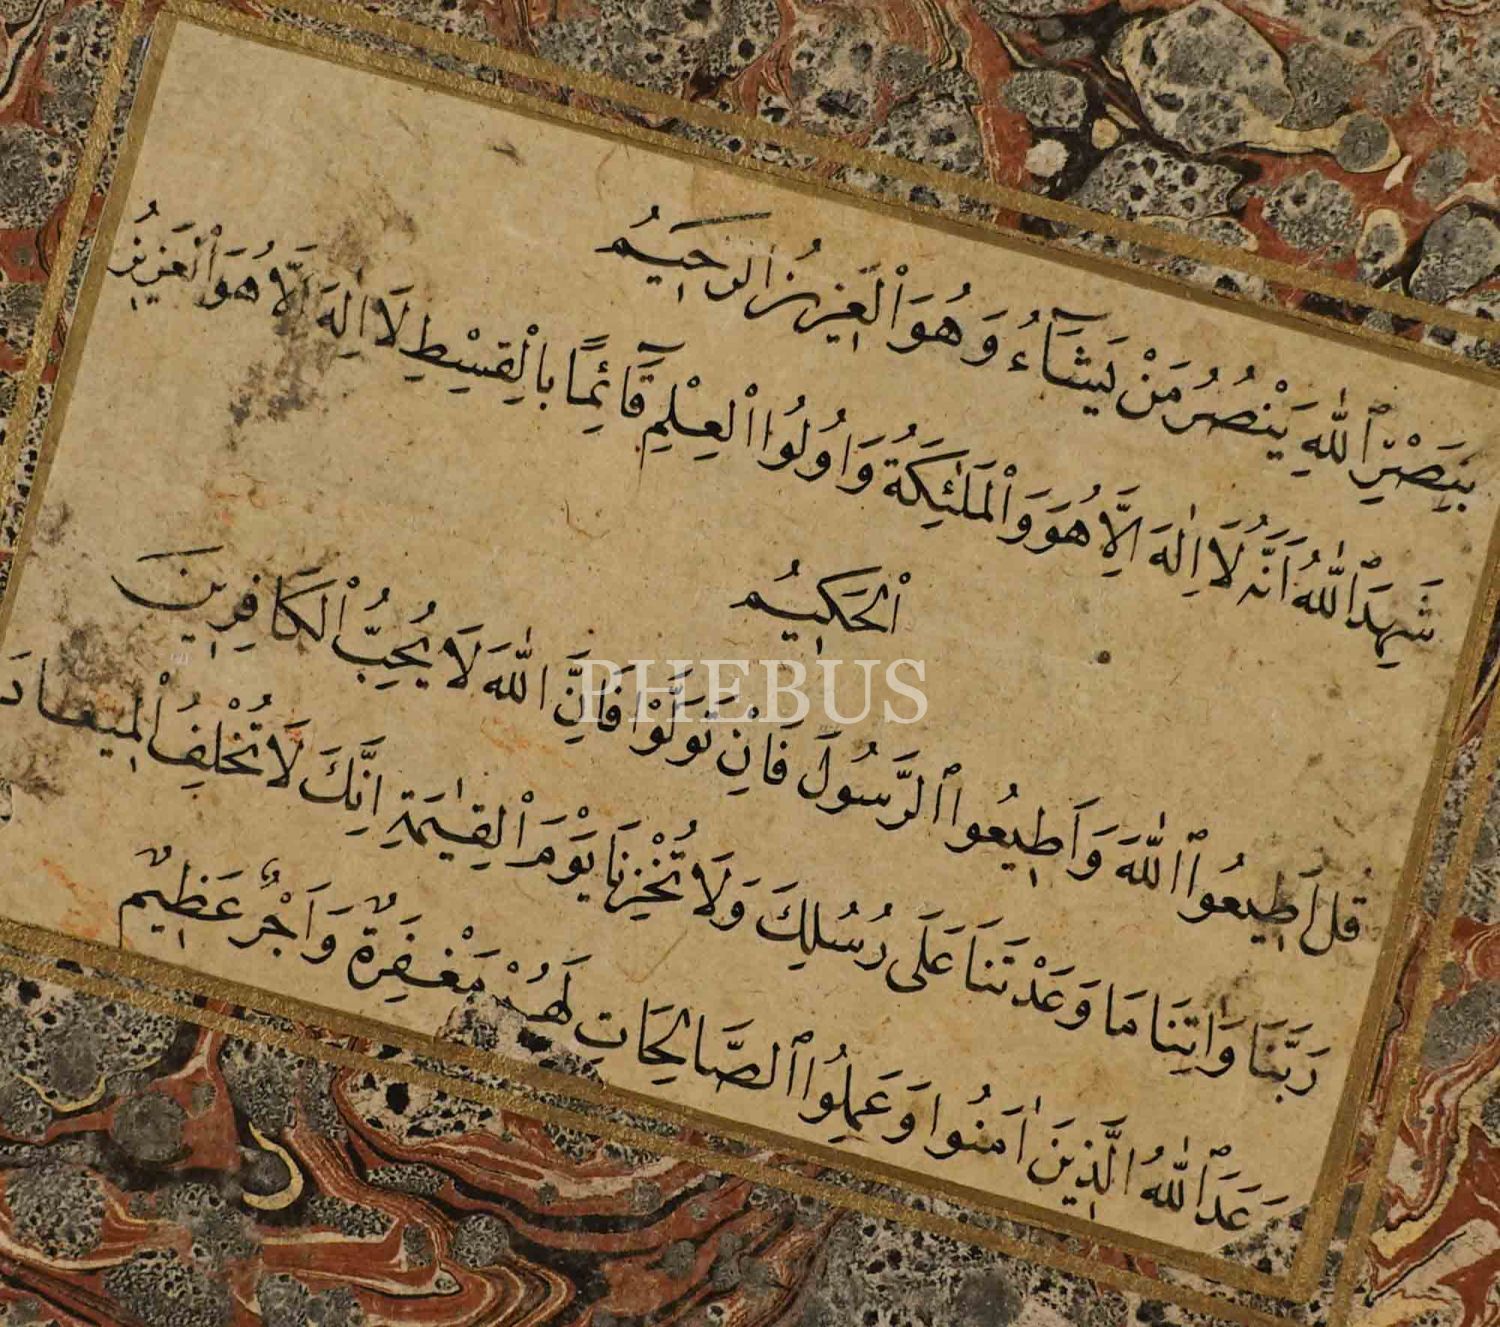 بِنَصْرِ ٱللّٰهِ يَنْصُرُ مَنْ يَشَآءُ وَهُوَ ٱلْعَزِيزُ ٱلرَّحِيمُ
شَهِدَ ٱللّٰهُ اَنَّهُ لَا اِلٰهَ اِلَّا هُوَ وَٱلْمَلٰئِكَةُ وَاُولُوا ٱلْعِلْمِ قَآئِمًا بِالْقِسْطِ لَا اِلٰهَ اِلَّا هُوَ ٱلْعَزِيزُ
ٱلْحَكِيمُ
قُلْ اَطِيعُوا ٱللّٰهَ وَاَطِيعُوا ٱلرَّسُولَ فَاِنْ تَوَلَّوْا فَاِنَّ ٱللّٰهَ لَا يُحِبُّ ٱلْكَافِرِينَ
PHEBUS
رَبَّنَا وَاٰتِنَا مَا وَعَدْتَنَا عَلَى رُسُلِكَ وَلَا تُخْزِنَا يَوْمَ ٱلْقِيٰمَةِ اِنَّكَ لَا تُخْلِفُ ٱلْمِيعَادَ
وَعَدَ ٱللّٰهُ ٱلَّذِينَ اٰمَنُوا وَعَمِلُوا ٱلصَّالِحَاتِ لَهُمْ مَغْفِرَةٌ وَاَجْرٌ عَظِيمٌ